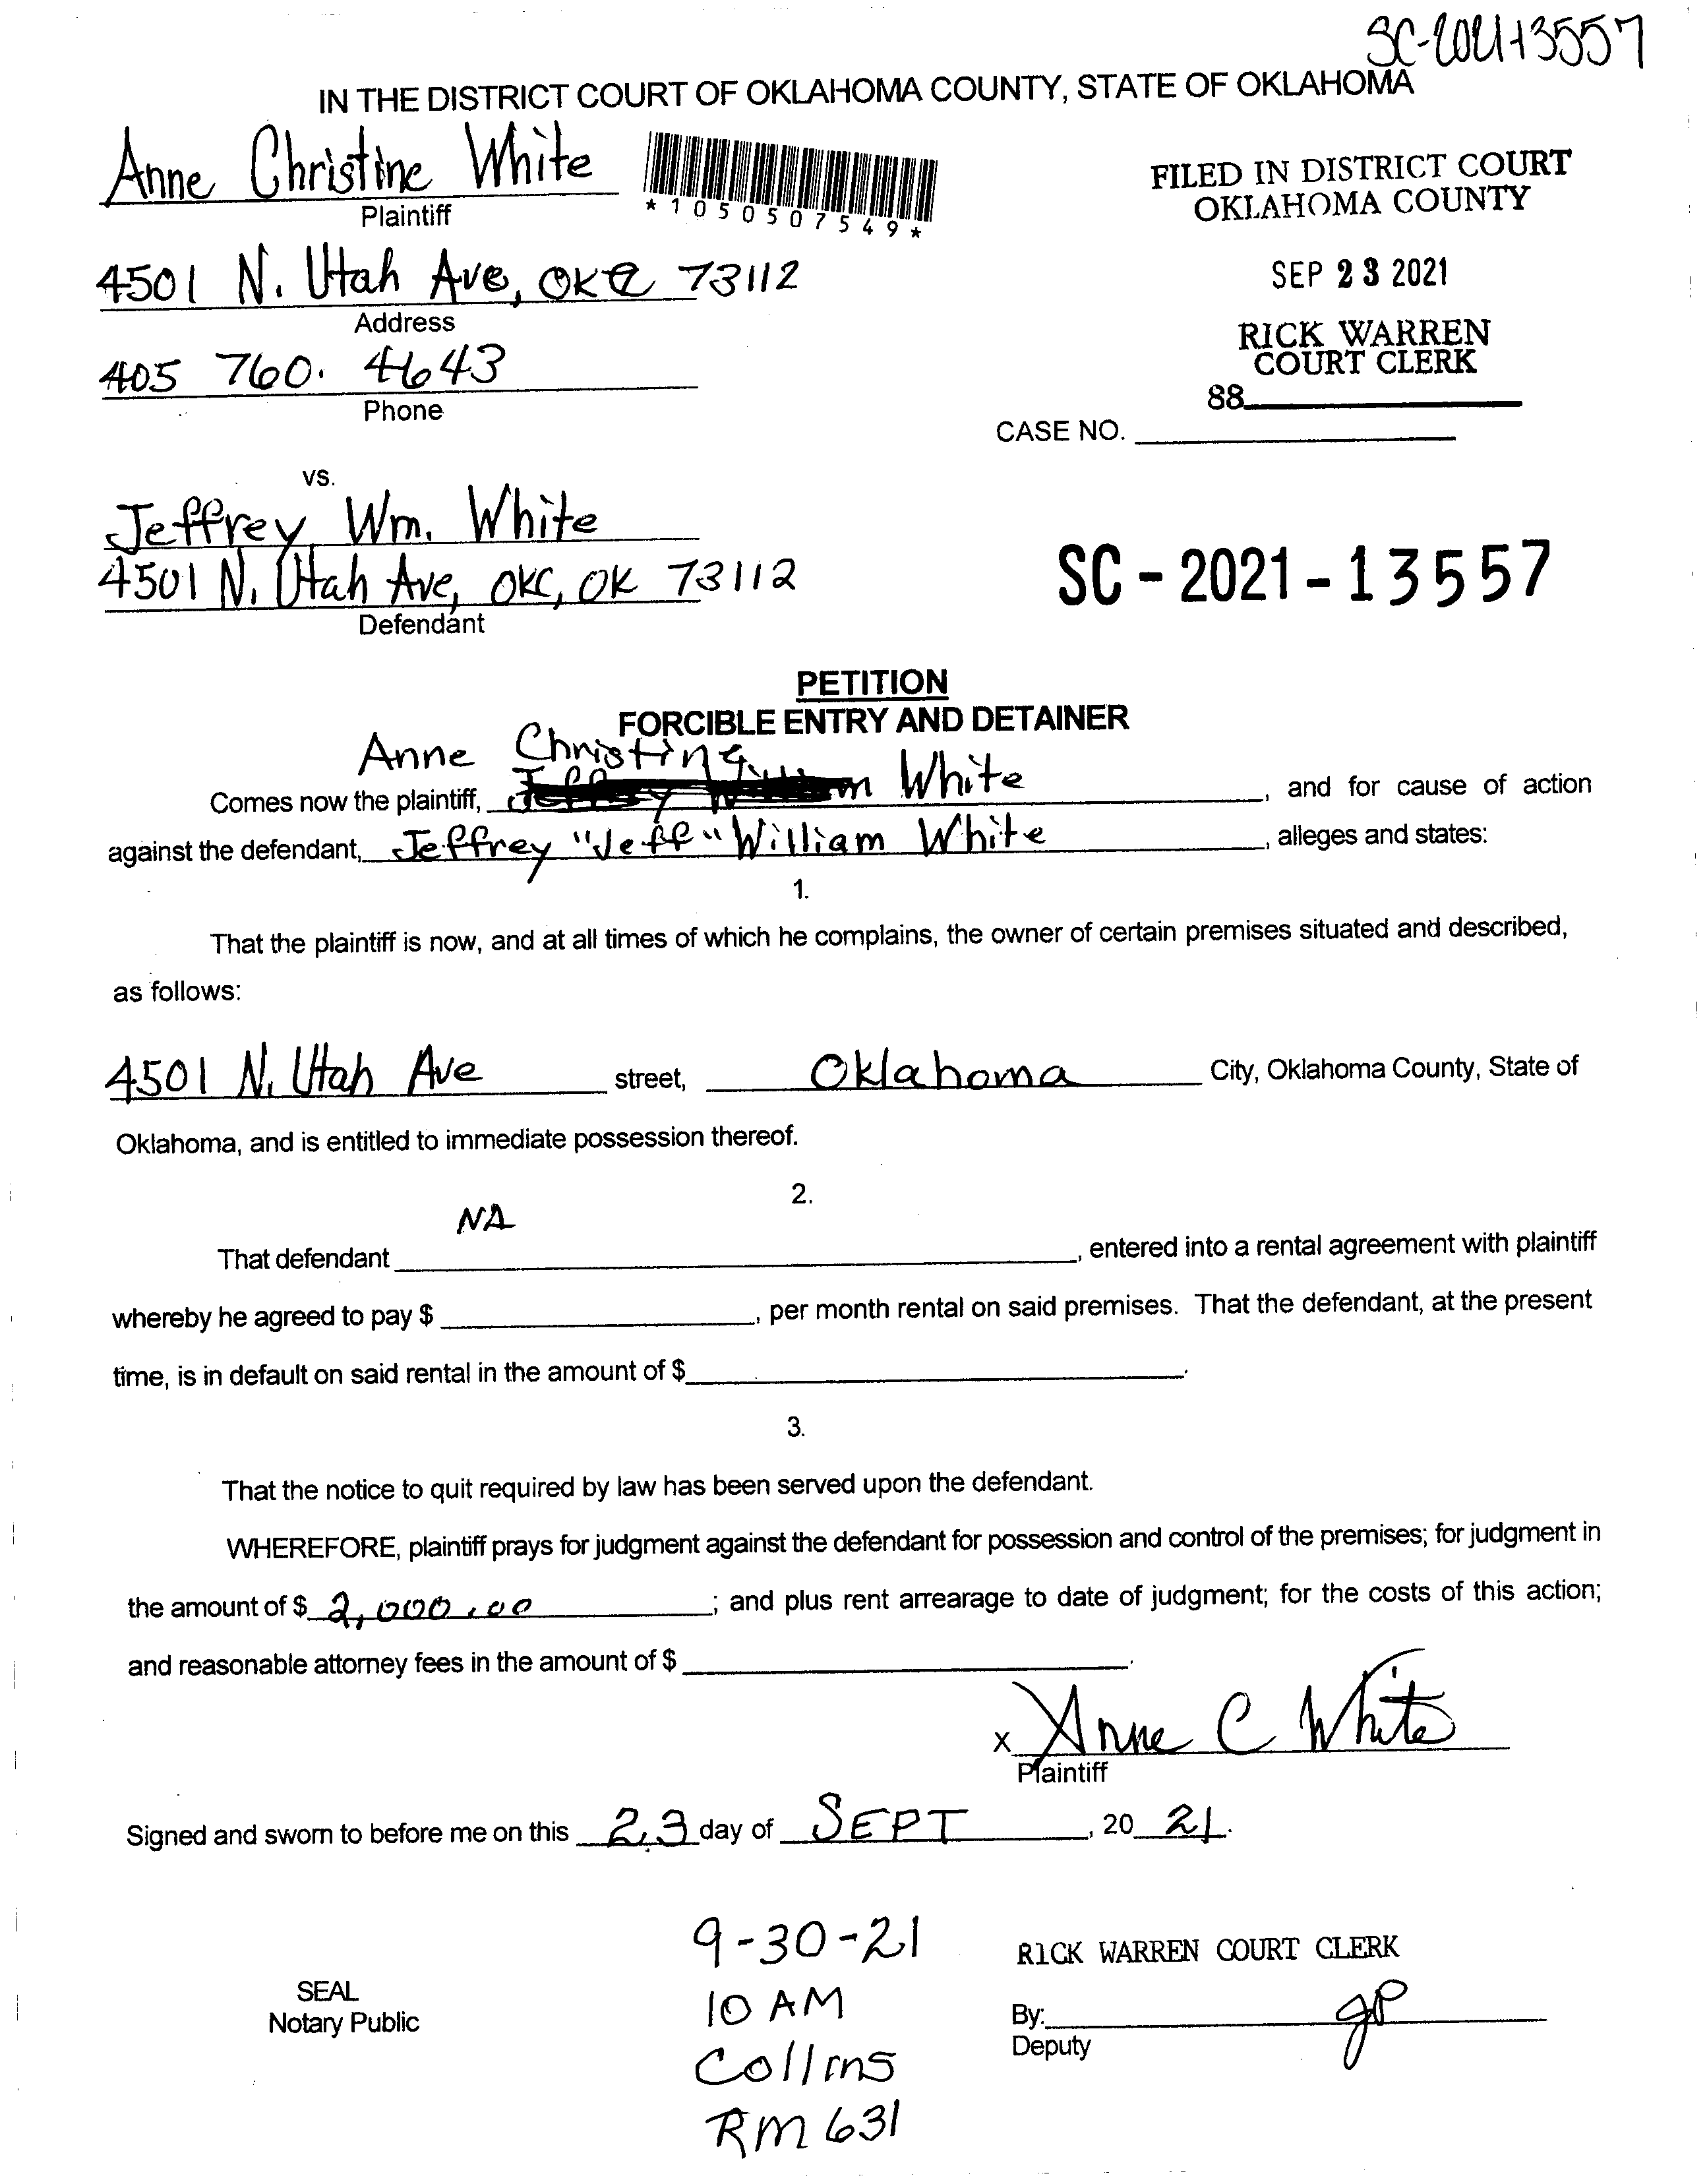 SC-2021-13557
IN THE DISTRICT COURT OF OKLAHOMA COUNTY, STATE OF OKLAHOMA
Anne Christine White
Plaintiff
*1050507549*
FILED IN DISTRICT COURT
OKLAHOMA COUNTY
SEP 23 2021
RICK WARREN
COURT CLERK
88
4501 N. Utah Ave, OKC 73112
Address
405 760. 4643
Phone
CASE NO.
vs.
Jeffrey Wm. White
4501 N. Utah Ave, OKC, OK 73112
Defendant
SC-2021-13557
PETITION
FORCIBLE ENTRY AND DETAINER
Anne Christine
Comes now the plaintiff, White, and for cause of action
against the defendant, Jeffrey "Jeff" William White, alleges and states:
1.
That the plaintiff is now, and at all times of which he complains, the owner of certain premises situated and described,
as follows:
4501 N. Utah Ave street, Oklahoma City, Oklahoma County, State of
Oklahoma, and is entitled to immediate possession thereof.
2.
NA
That defendant , entered into a rental agreement with plaintiff
whereby he agreed to pay $ , per month rental on said premises. That the defendant, at the present
time, is in default on said rental in the amount of $ .
3.
That the notice to quit required by law has been served upon the defendant.
WHEREFORE, plaintiff prays for judgment against the defendant for possession and control of the premises; for judgment in
the amount of $ 2,000.00 ; and plus rent arrearage to date of judgment; for the costs of this action;
and reasonable attorney fees in the amount of $ .
x Anne C White
Plaintiff
Signed and sworn to before me on this 23 day of SEPT, 20 21.
SEAL
Notary Public
9-30-21
10 AM
Collins
RM 631
RICK WARREN COURT CLERK
By: gP
Deputy